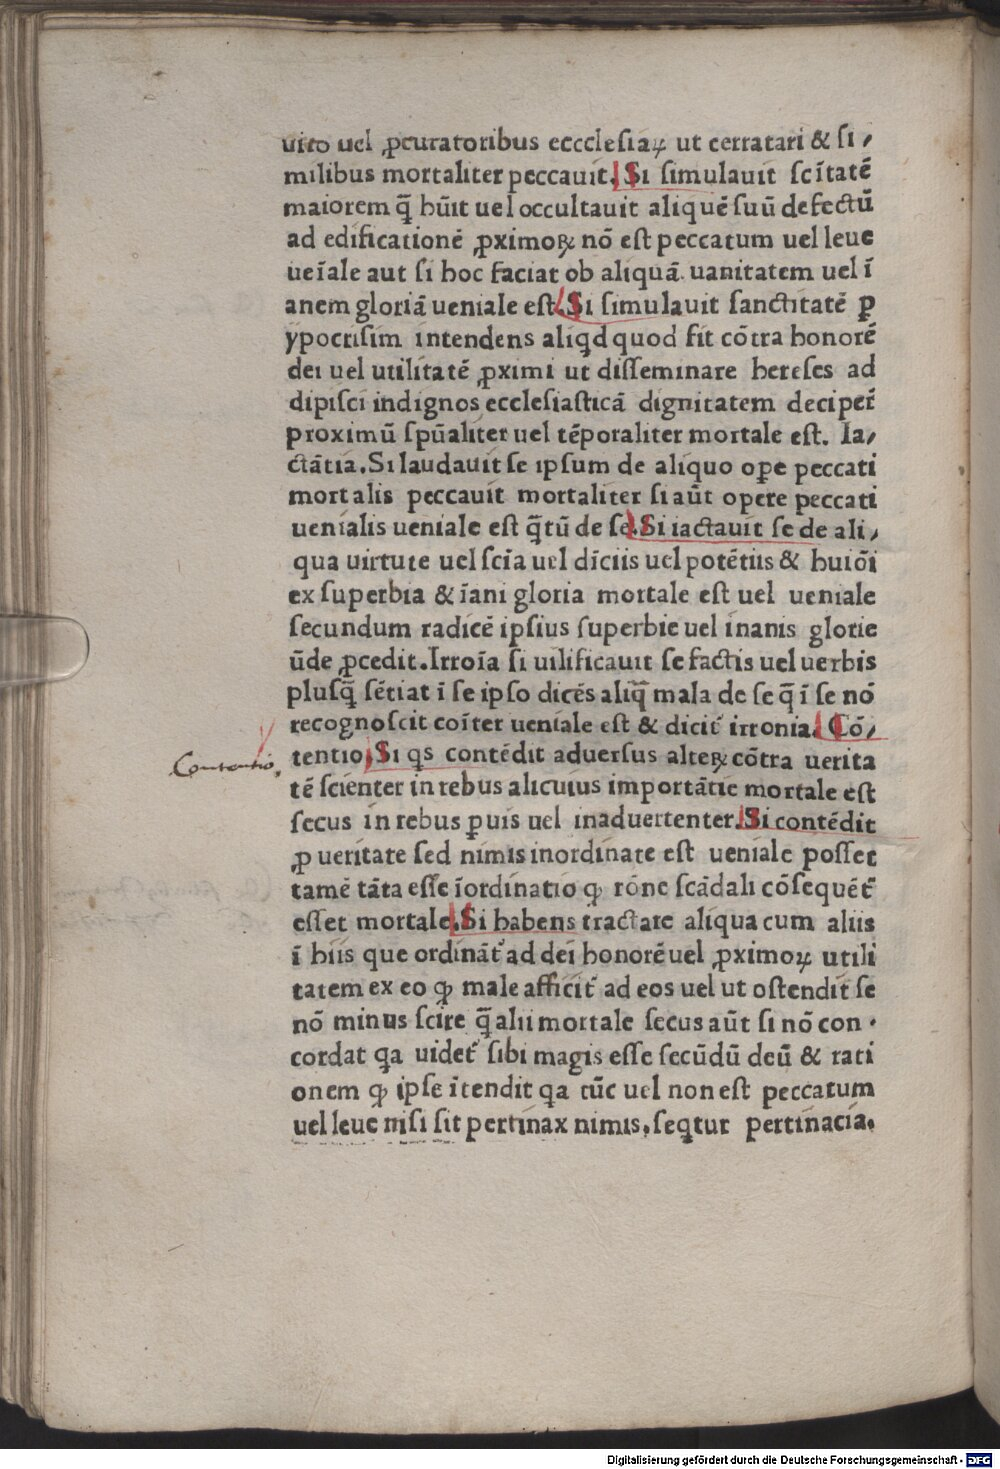 uito uel ꝓcuratoribus eccclesiaꝝ ut cerratari & si,
milibus mortaliter peccauit. Si simulauit scītatē
maiorem q̄ hūit uel occultauit aliquē suū defectū
ad edificationē ꝓximoꝝ nō est peccatum uel leue
ueīale aut si hoc faciat ob aliquā uanitatem uel ī
anem gloriā ueniale est. Si simulauit sanctitatē ꝑ
ypocrisim intendens aliqd quod fit cōtra honorē
dei uel utilitatē ꝓximi ut disseminare hereses ad
dipisci indignos ecclesiasticā dignitatem deciper̄
proximū spūaliter uel tēporaliter mortale est. Ia,
ctātia. Si laudauit se ipsum de aliquo oꝑe peccati
mortalis peccauit mortaliter si aūt opere peccati
uenialis ueniale est q̄tū de se. Si iactauit se de ali,
qua uirtute uel scīa uel dīciis uel potētiis & huiōi
ex superbia & īani gloria mortale est uel ueniale
secundum radicē ipsius superbie uel inanis glorie
ūde ꝓcedit. Irroīa si uilificauit se factis uel uerbis
plusq̄ sētiat ī se ipso dicēs aliq̄ mala de se q̄ ī se nō
recognoscit coīter ueniale est & dicit᷑ irronia. Cō,
tentio. Si qs contēdit aduersus alteꝝ cōtra uerita
Contentio.
tē scienter in rebus alicuius importātie mortale est
secus in rebus ꝑuis uel inaduertenter. Si contēdit
ꝓ ueritate sed nimis inordinate est ueniale posset
tamē tāta esse īordinatio ꝙ rōne scādali cōsequēt᷑
esset mortale. Si habens tractare aliqua cum aliis
ī hiis que ordināt᷑ ad dei honorē uel ꝓximoꝝ utili
tatem ex eo ꝙ male afficit᷑ ad eos uel ut ostendit se
nō minus scire q̄ alii mortale secus aūt si nō con
cordat qa uidet᷑ sibi magis esse secūdū deū & rati
onem ꝙ ipse ītendit qa tūc uel non est peccatum
uel leue nisi sit pertinax nimis. seqtur pertinacia.
Digitalisierung gefördert durch die Deutsche Forschungsgemeinschaft - DFG